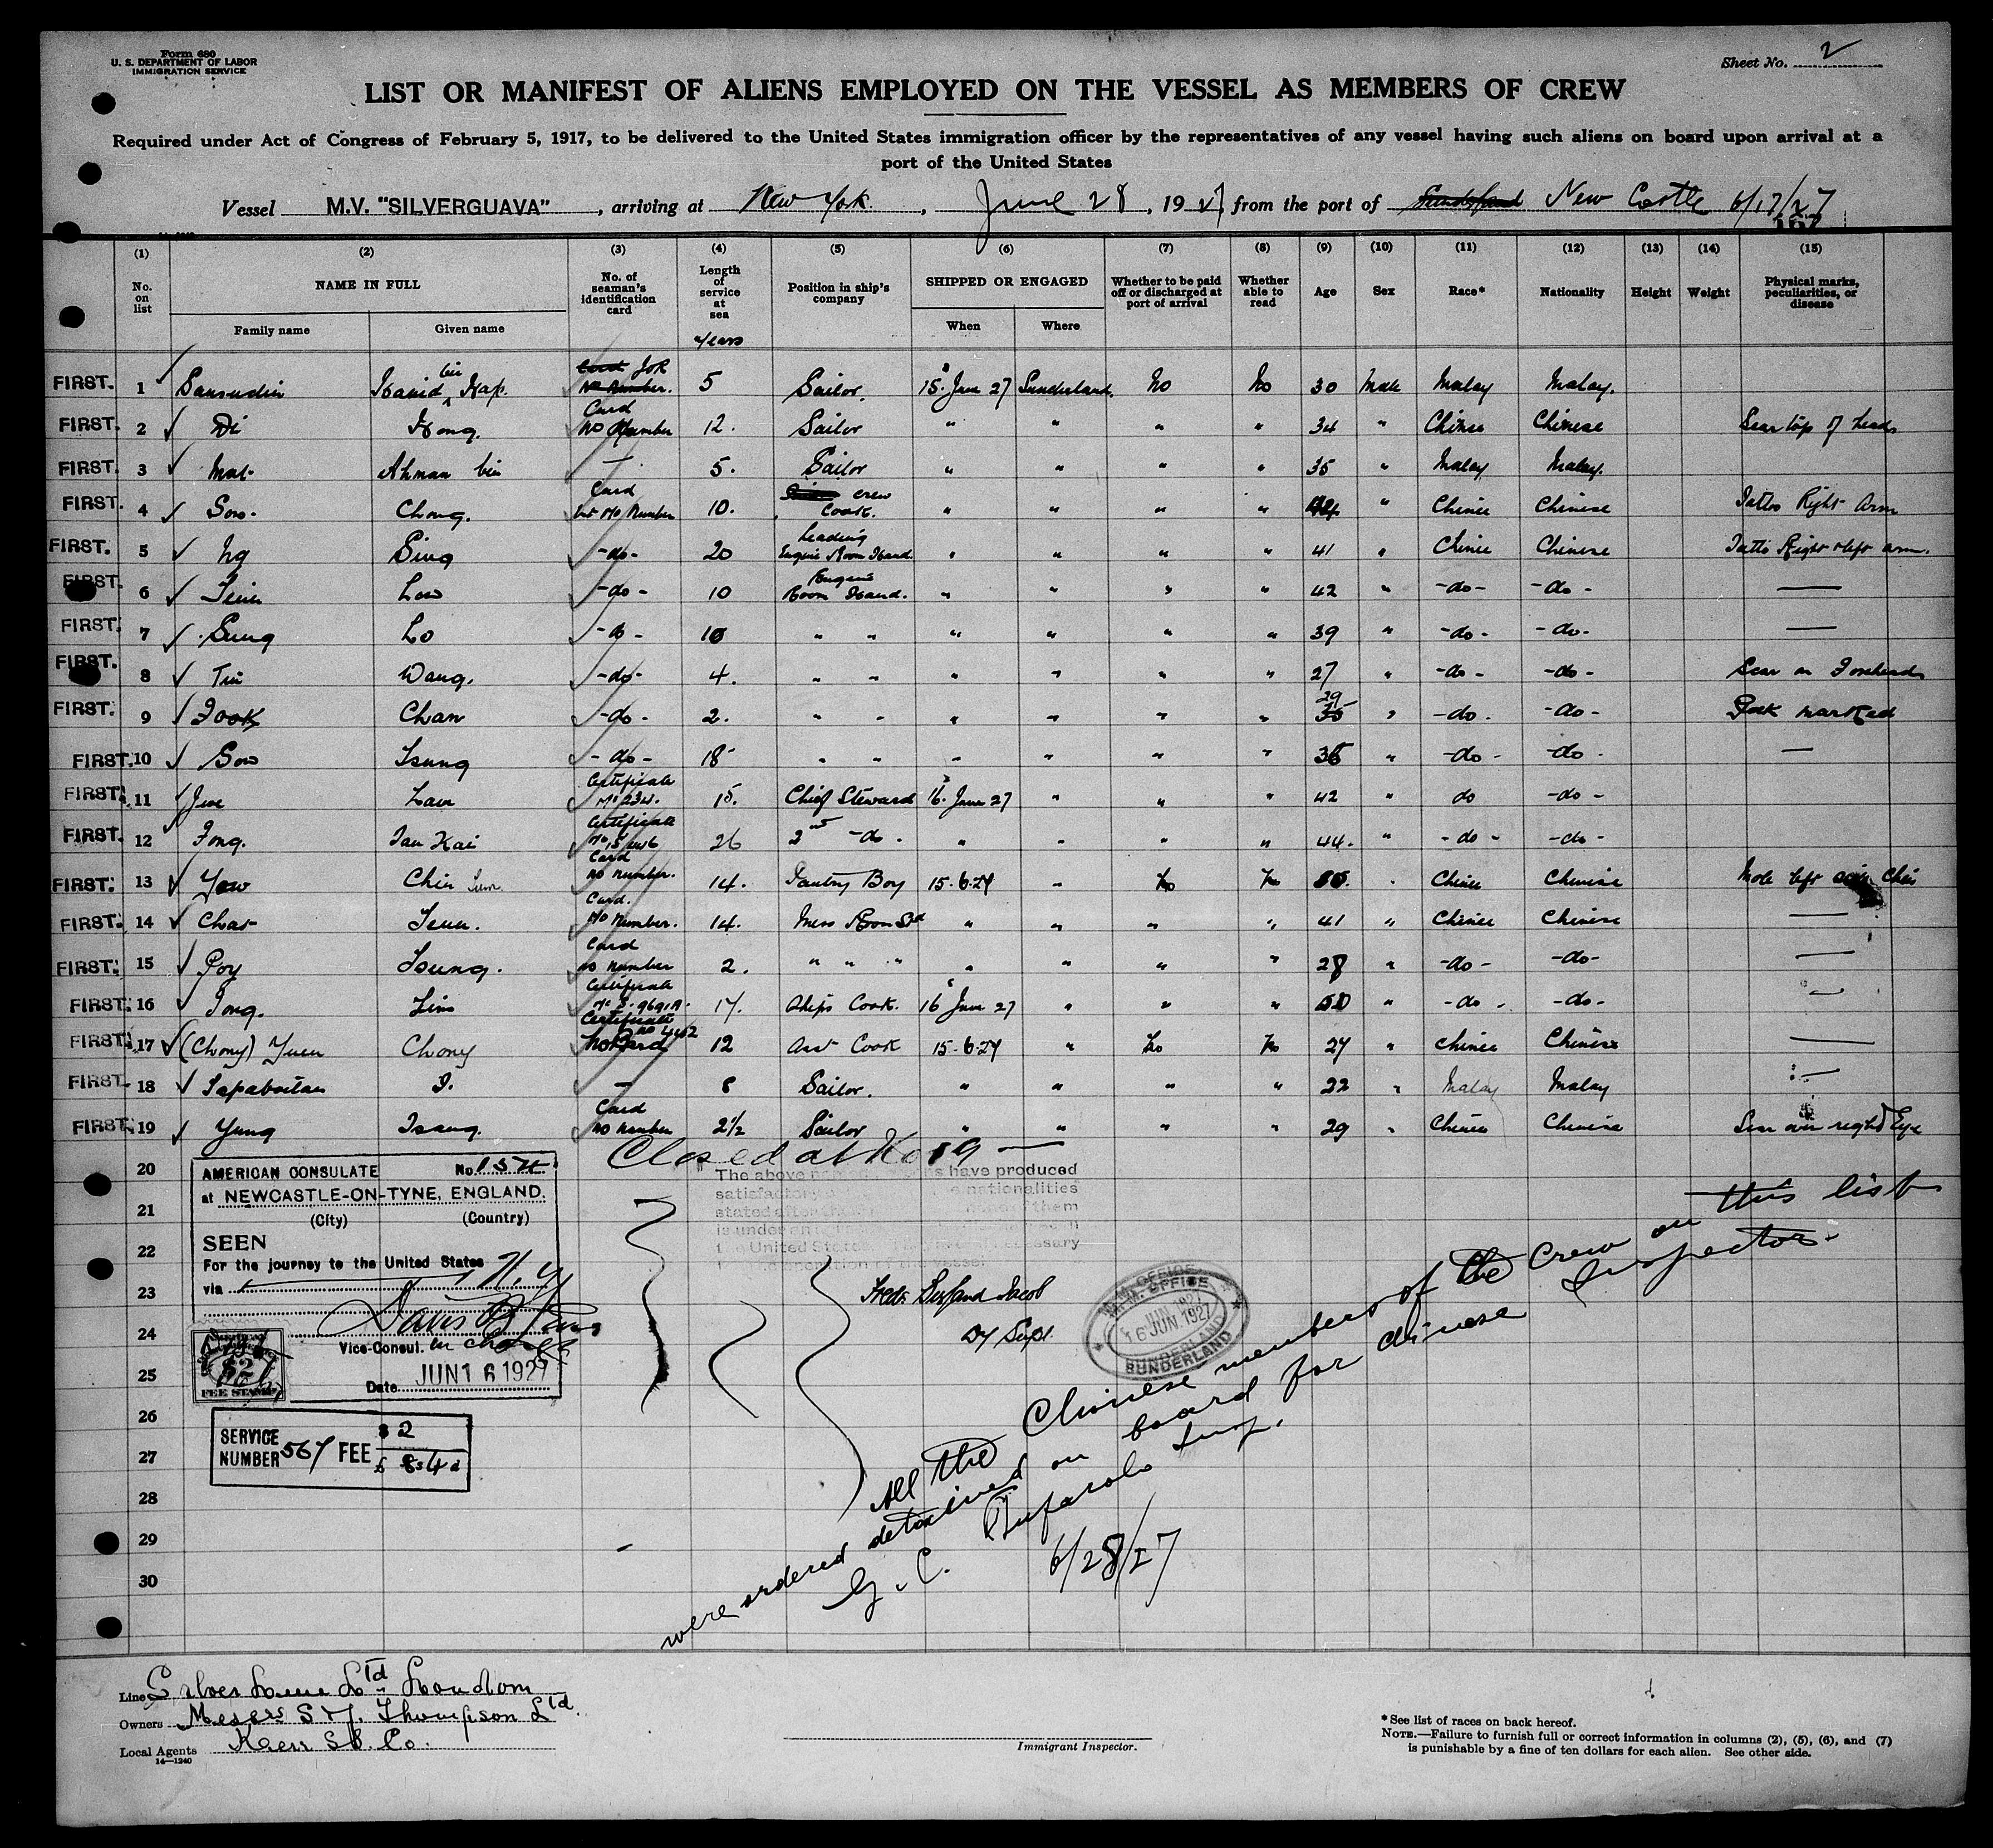 Form 680
U. S. DEPARTMENT OF LABOR
IMMIGRATION SERVICE
Sheet No. 2
LIST OR MANIFEST OF ALIENS EMPLOYED ON THE VESSEL AS MEMBERS OF CREW
Required under Act of Congress of February 5, 1917, to be delivered to the United States immigration officer by the representatives of any vessel having such aliens on board upon arrival at a
port of the United States
Vessel M.V. "SILVERGUAVA", arriving at New York, June 28, 1927, from the port of Sunderland New Castle 6/17/27
(1) (2) (3) (4) (5) (6) (7) (8) (9) (10) (11) (12) (13) (14) (15)
No. on list NAME IN FULL Family name Given name No. of seaman's identification card Length of service at sea Years Position in ship's company SHIPPED OR ENGAGED When Where Whether to be paid off or discharged at port of arrival Whether able to read Age Sex Race* Nationality Height Weight Physical marks, peculiarities, or disease
FIRST. 1 Sansudin bin Kap. 5 Sailor. 15. June 27 Sunderland. No No 30 Male Malay Malay.
FIRST. 2 Di Hong. Card No Number 12. Sailor " " " " 34 " Chinese Chinese Scar top of head
FIRST. 3 Mat. Ahman bin — 5. Sailor " " " " 35 " Malay Malay.
FIRST. 4 Sow. Chong. Card but No Number 10. crew Cook. " " " " " Chinese Chinese Tattoo Right Arm
FIRST. 5 Ng Sing -do- 20 Leading Engine Room Hand " " " " 41 " Chinese Chinese Tatto Right & left arm.
FIRST. 6 Low -do- 10 Engine Room Hand. " " " " 42 " -do- -do- —
FIRST. 7 Sung Lo -do- 10 " " " " " " 39 " -do- -do- —
FIRST. 8 Tin Wang. -do- 4. " " " " " " 27 " -do- -do- Scar on Forehead
FIRST. 9 Fook Chan -do- 2. " " " " " " 39 35 " -do- -do- Pock marked
FIRST. 10 Sow Tsung -do- 18 " " " " " " 36 " -do- -do- —
FIRST. 11 Jue Lau Certificate No 234. 15. Chief Steward 16. June 27 " " " 42 " do -do-
FIRST. 12 Fong. Tau Kai Certificate 26 2nd -do- " " " " 44. " -do- -do-
FIRST. 13 Yow Chin Lum Card no number. 14. Pantry Boy 15-6-27 " No No " Chinese Chinese Mole left Chin
FIRST. 14 Chat Card. No Number. 14. Mess Room Std " " " " 41 " Chinese Chinese —
FIRST. 15 Poy Tsung. Card no number 2. " " " " " " " 28 " -do- -do- —
FIRST. 16 Tong. Lim Certificate 17. Ships Cook. 16 June 27 " " " " -do- -do- —
FIRST. 17 (Chong) Yuen Chong Certificate no 4452 No Card 12 Asst Cook 15-6-27 " No No 27 " Chinese Chinese —
FIRST. 18 Sapaboitan I. — 8 Sailor. " " " " 22 " Malay Malay —
FIRST. 19 Yung Tsang. Card no number 2½ Sailor " " " " 29 " Chinese Chinese Scar over right Eye
20 Closed at No 19 —
21
22
23
24
25
26
27
28
29
30
AMERICAN CONSULATE No. 154
at NEWCASTLE-ON-TYNE, ENGLAND.
(City) (Country)
SEEN
For the journey to the United States
via N.Y.
Vice-Consul. in charge
Date JUN 16 1927
$2
FEE STAMP
SERVICE NUMBER 567 FEE $2
£ 8s4d
The above have produced
satisfactory nationalities
stated after them
is under
the United States necessary
operation of the vessel
Dy Supt.
M.M. OFFICE
16 JUN. 1927
SUNDERLAND
All the Chinese members of the crew on this list
were ordered detained on board for Chinese Inspector.
G. C. Insp.
6/28/27
Line Silver Line Ltd London
Owners Messrs S & J. Thompson Ltd.
Local Agents Kerr SS. Co.
14—1240
Immigrant Inspector.
*See list of races on back hereof.
NOTE.—Failure to furnish full or correct information in columns (2), (5), (6), and (7)
is punishable by a fine of ten dollars for each alien. See other side.